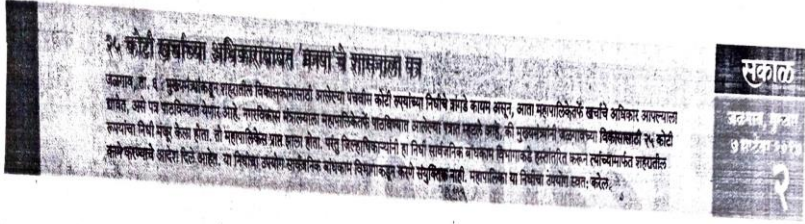 २५ कोटी खर्चाच्या अधिकाराबाबत 'मनपा'चे शासनाला पत्र
जळगाव, ता. ६ : मुख्यमंत्र्यांकडून शहरातील विकासकामांसाठी आलेल्या पंचवीस कोटी रुपयांच्या निधीचे त्रांगडे कायम असून, आता महापालिकेतर्फे खर्चाचे अधिकार आपल्याला
द्यावेत, असे पत्र पाठविण्यात येणार आहे. नगरविकास मंत्रालयाला महापालिकेतर्फे पाठविण्यात आलेल्या पत्रात म्हटले आहे, की मुख्यमंत्र्यांनी जळगावच्या विकासासाठी २५ कोटी
रुपयांचा निधी मंजूर केला होता. तो महापालिकेस प्राप्त झाला होता. परंतु जिल्हाधिकाऱ्यांनी हा निधी सार्वजनिक बांधकाम विभागाकडे हस्तांतरित करून त्यांच्यामार्फत शहरातील
कामे करण्याचे आदेश दिले आहेत. या निधीचा उपयोग सार्वजनिक बांधकाम विभागाकडून करणे संयुक्तिक नाही. महापालिका या निधीचा उपयोग स्वतः करेल.
सकाळ
जळगाव,
७
२